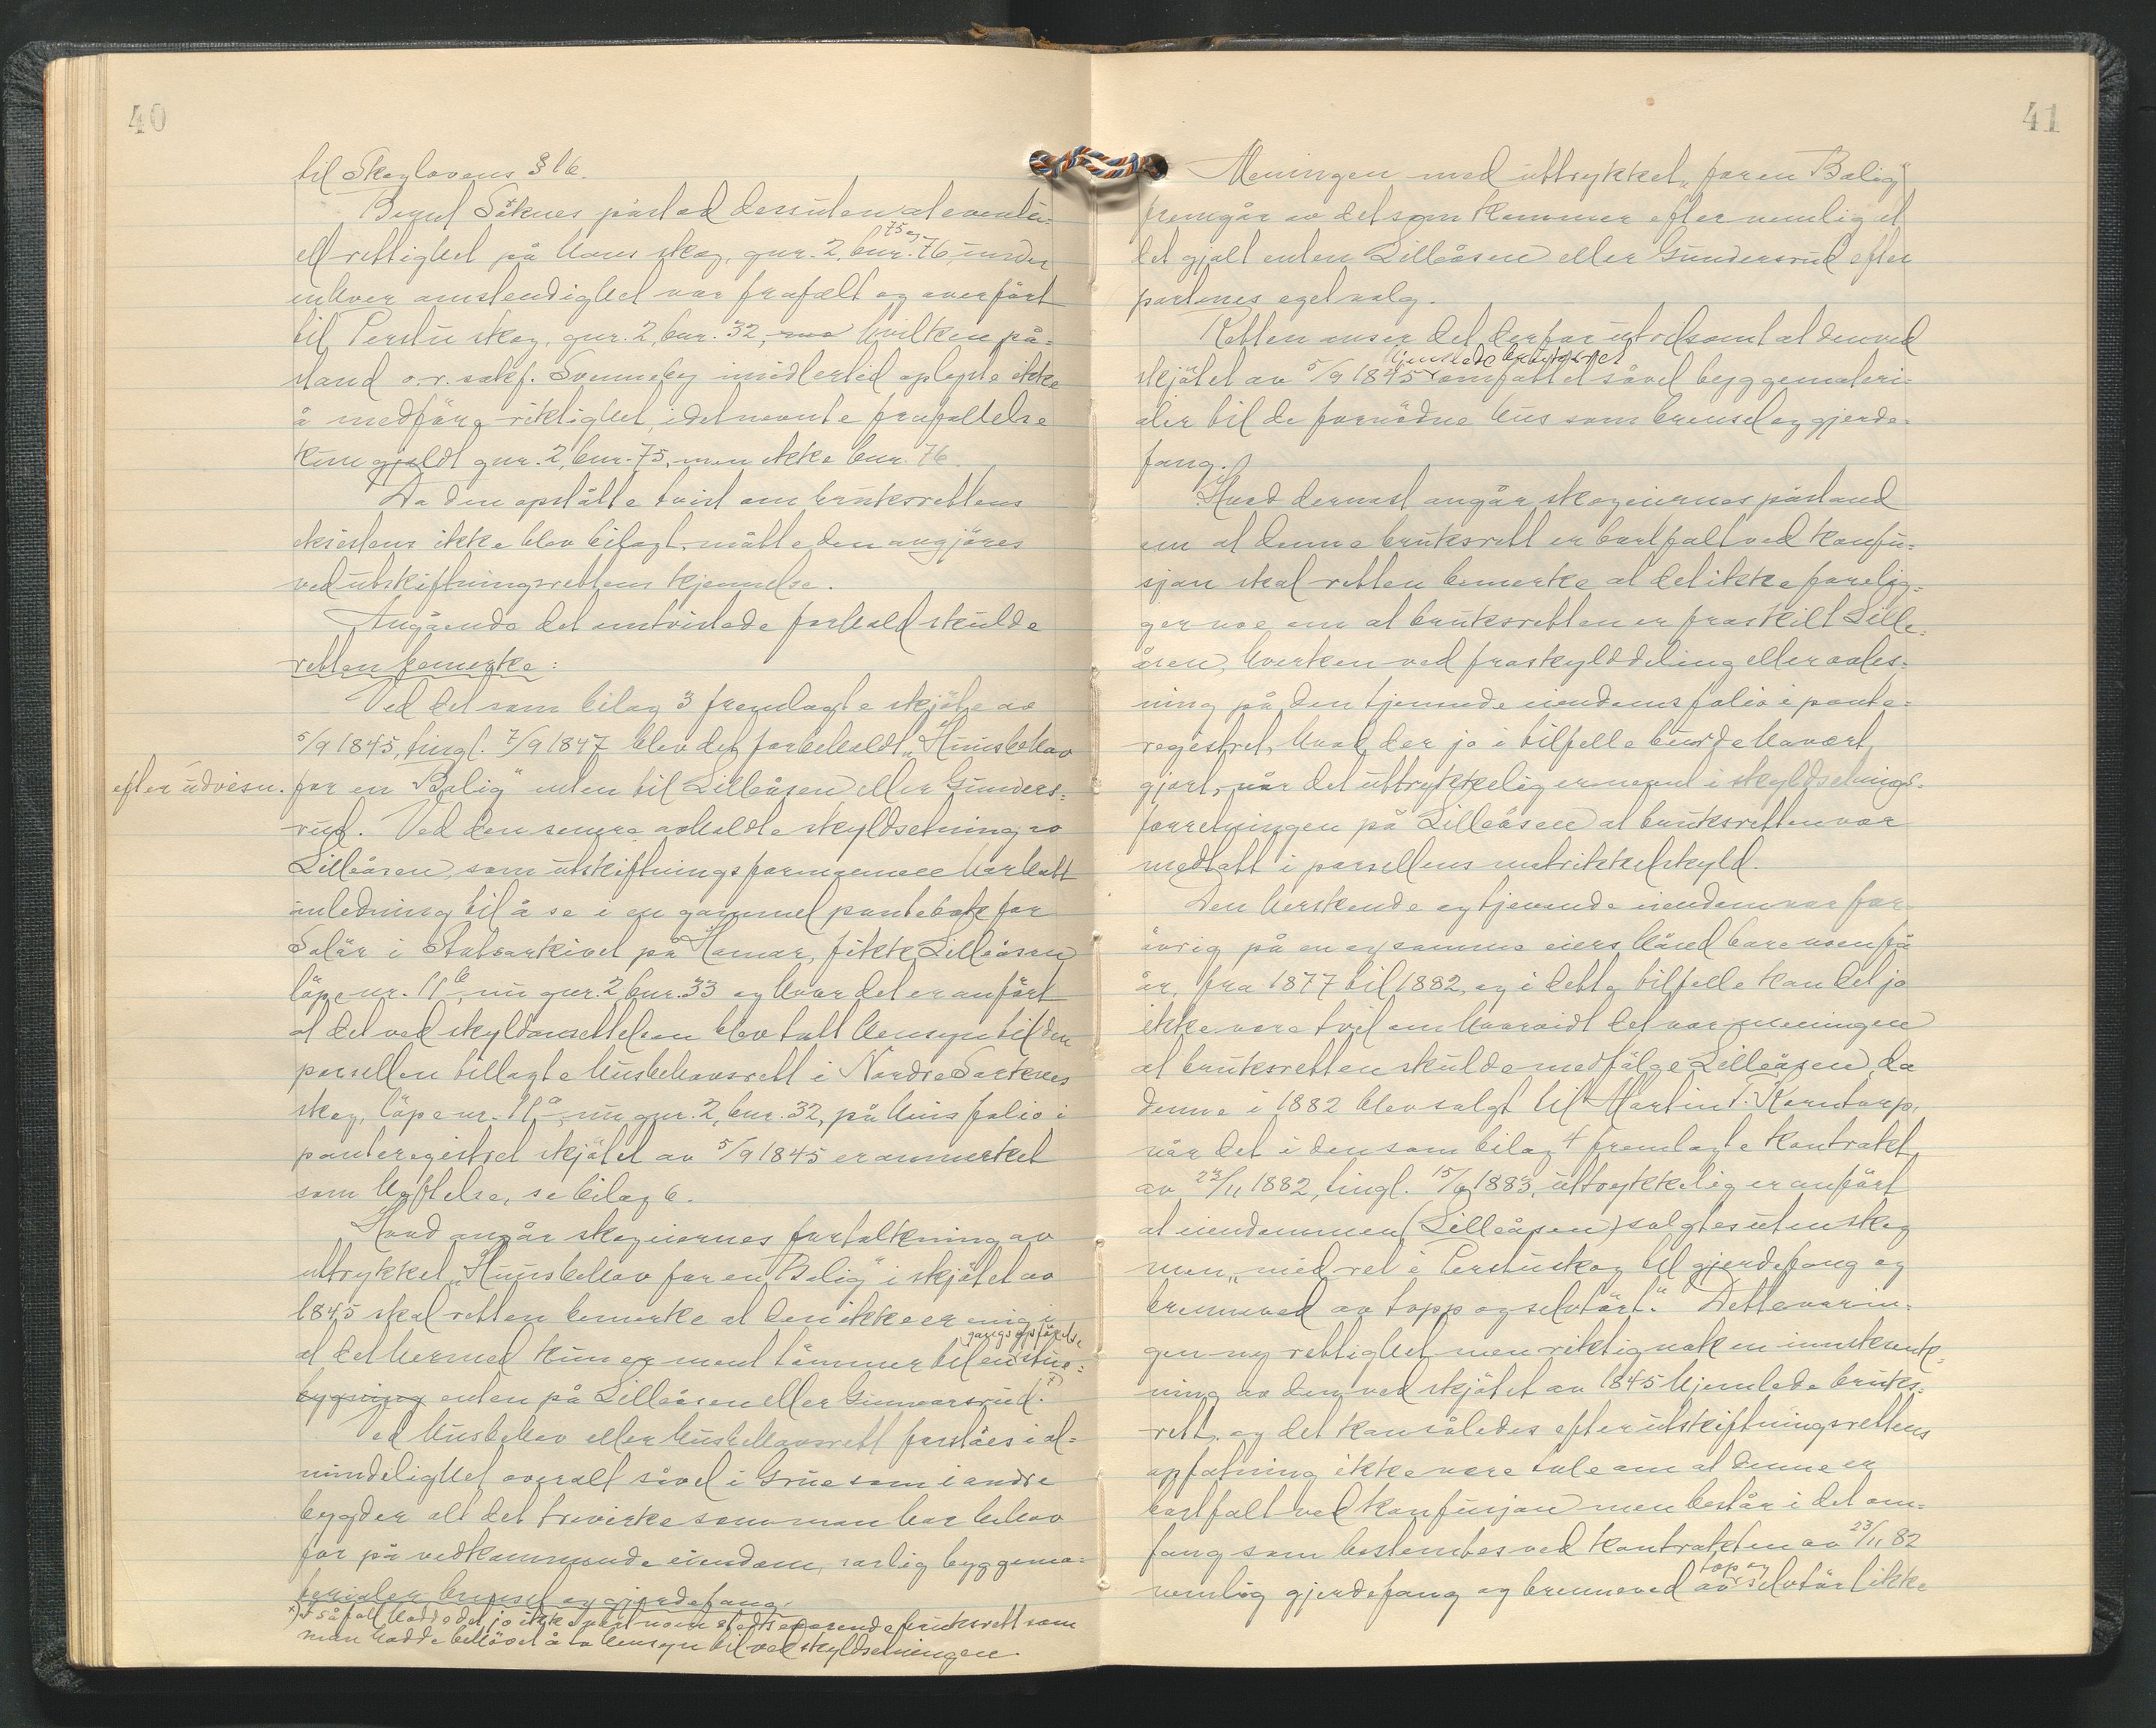 40
til Skoglovens § 16.
Bernt Såknes påstod dessuten at eventu-
ell rettighet på hans skog, gnr. 2, bnr. 75 og 76, under
enhver omstendighet var frafalt og overført
til Perstu skog, gnr. 2, bnr. 32, hvilken på-
stand o.r. sakf. Svenneby imidlertid oplyste ikke
å medføre riktighet, idet nevnte frafallelse
kun gjeldt gnr. 2, bnr. 75, men ikke bnr. 76.
Da den opståtte tvist om bruksrettens
eksistens ikke blev bilagt, måtte den avgjøres
ved utskiftningsrettens kjennelse.
Angående det omtvistede forhold skulde
retten bemerke:
Ved det som bilag 3 fremlagte skjøte av
5/9 1845, tingl. 7/9 1847 blev det forbeholdt "Huusbehov
efter udvisn. for en Bolig" enten til Lilleåsen eller Gunders-
rud. Ved den senere avholdte skyldsetning av
Lilleåsen, som utskiftningsformannen har hatt
anledning til å se i en gammel pantebok for
Solør i Statsarkivet på Hamar, fikk Lilleåsen
løpenr. 11b, nu gnr. 2, bnr. 33 og hvor det er anført
at det ved skyldansettelsen blev tatt hensyn til den
parsellen tillagte husbehovsrett i Nordre Sørknes
skog, løpenr. 11a, nu gnr. 2, bnr. 32, på hvis folio i
panteregistret skjøtet av 5/9 1845 er anmerket
som heftelse, se bilag 6.
Hvad angår skogeiernes fortolkning av
uttrykket "Huusbehov for en Bolig" i skjøtet av
1845 skal retten bemerke at den ikke er enig i
at det hermed kun er ment tømmer til en gangs opførelse stue-
bygning enten på Lilleåsen eller Gunnarsrud. x)
Ved husbehov eller husbehovsrett forståes i al-
mindelighet overalt såvel i Grue som i andre
bygder alt det trevirke som man har behov
for på vedkommende eiendom, særlig byggema-
terialer, brensel og gjerdefang.
x) I så fall hadde det jo ikke vært noen stedsevarende bruksrett som
man hadde behøvet å ta hensyn til ved skyldsetningen.
41
Meningen med uttrykket "for en Bolig"
fremgår av det som kommer efter nemlig at
det gjalt enten Lilleåsen eller Gundersrud efter
partenes eget valg.
Retten anser det derfor utvilsomt at den ved
skjøtet av 5/9 1845 hjemlede bruksrett omfattet såvel byggemateri-
aler til de fornødne hus som brensel og gjerde-
fang.
Hvad dernæst angår skogeiernes påstand
om at denne bruksrett er bortfalt ved konfu-
sjon skal retten bemerke at det ikke forelig-
ger noe om at bruksretten er fraskilt Lille-
åsen, hverken ved fraskylddeling eller avles-
ning på den tjenende eiendoms folio i pante-
registret, hvad der jo i tilfelle burde ha vært
gjort, når det uttrykkelig er nevnt i skyldsetnings-
forretningen på Lilleåsen at bruksretten var
medtatt i parsellens matrikkelskyld.
Den herskende og tjenende eiendom var for-
øvrig på en og samme eiers hånd bare noen få
år, fra 1877 til 1882, og i dette tilfelle kan det jo
ikke være tvil om hvorvidt det var meningen
at bruksretten skulde medfølge Lilleåsen, da
denne i 1882 blev solgt til Martin T. Korntorp,
når det i den som bilag 4 fremlagte kontrakt
av 23/11 1882, tingl. 15/6 1883, uttrykkelig er anført
at eiendommen (Lilleåsen) solgtes uten skog
men "med ret i Perstuskog til gjerdefang og
brenneved av topp og selvtørt." Dette var in-
gen ny rettighet men riktignok en innskrenk-
ning av den ved skjøtet av 1845 hjemlede bruks-
rett, og det kan således efter utskiftningsrettens
opfatning ikke være tale om at denne er
bortfalt ved konfusjon men består i det om-
fang som bestemtes ved kontrakten av 23/11 82
nemlig gjerdefang og brenneved av top og selvtørt ikke